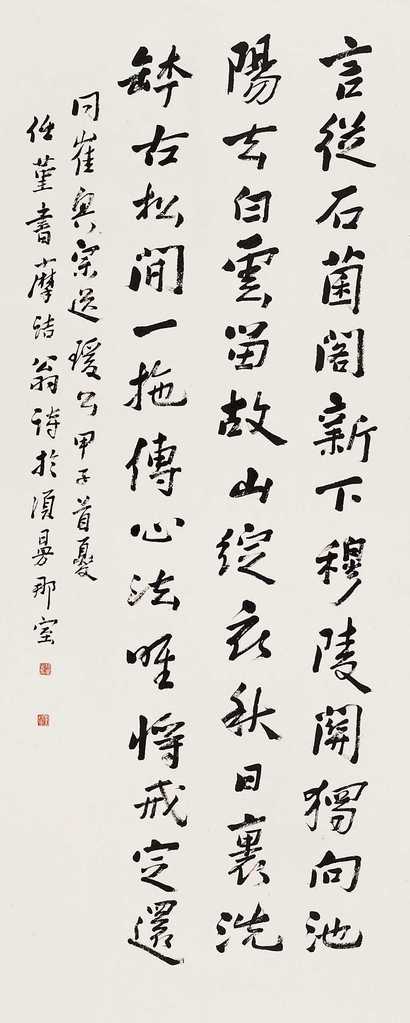 言從石菌閣新下穆陵關獨向池
陽去白雲留故山綻衣秋日裏洗
缽古松間一施傳心法唯將戒定還
同崔興宗送瑗公甲子首夏
任堇書摩詰翁詩於須曼那室